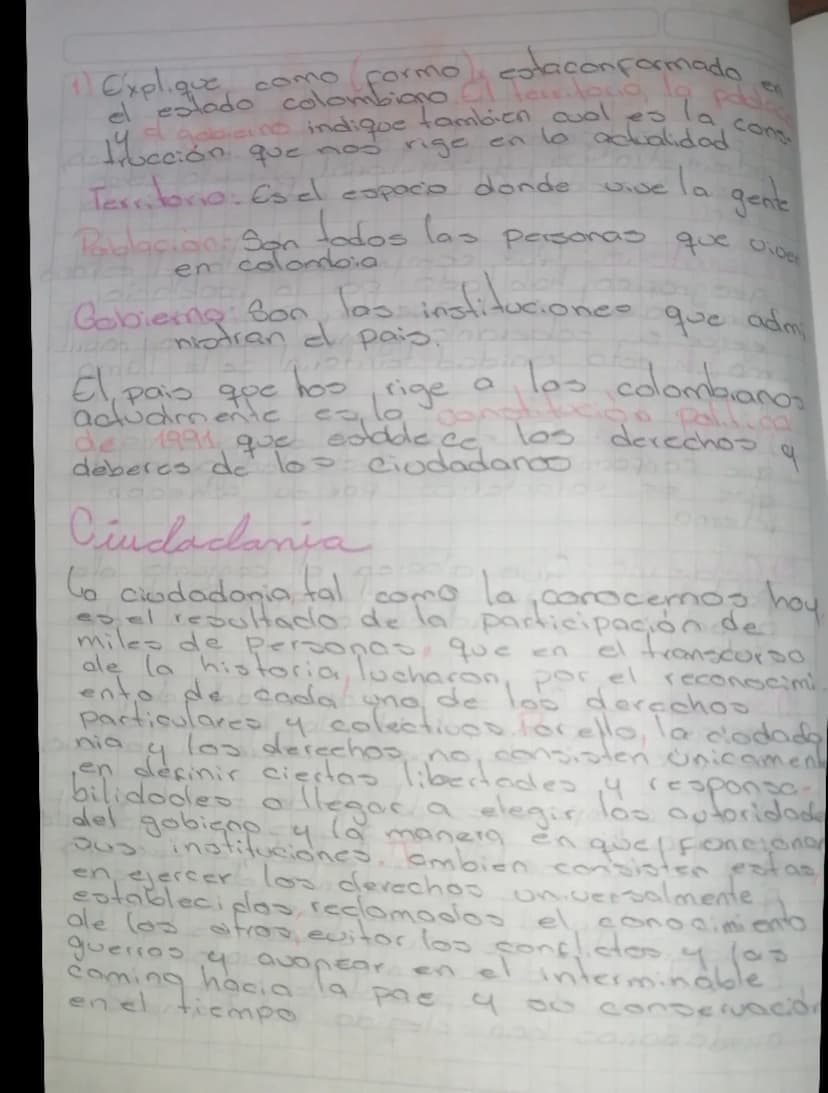 1) Explique como (formo) estaconformado en
el estado colombiano El territorio, la poblac
y el gobierno indique tambien cual es la cons
titucción que nos rige en la actualidad
Territorio: Es el espacio donde vive la gente
Poblacion: Son todos las personas que viven
en colombia
Gobierno: Son las instituciones que admi
nistran el pais.
El pais que nos rige a los colombianos
actualmente es la constitucion politica
de 1991 que establece los derechos y
deberes de los ciudadanos
Ciudadania
La ciudadania tal como la conocemos hoy
es el resultado de la participación de
miles de personas, que en el transcurso
de la historia, lucharon, por el reconocimi
ento de cada uno de los derechos
particulares y colectivos Por ello, la ciudada
nia y los derechos no consisten únicament
en definir ciertas libertades y responsa-
bilidades o llegar a elegir las autoridade
del gobierno y la manera en que funcionan
sus instituciones. Tambien consisten estas
en ejercer los derechos universalmente
establecidos, reclamados el conocimiento
de los otros, evitar los conflictos y las
guerras y avanzar en el interminable
camino hacia la paz y su conservación
en el tiempo